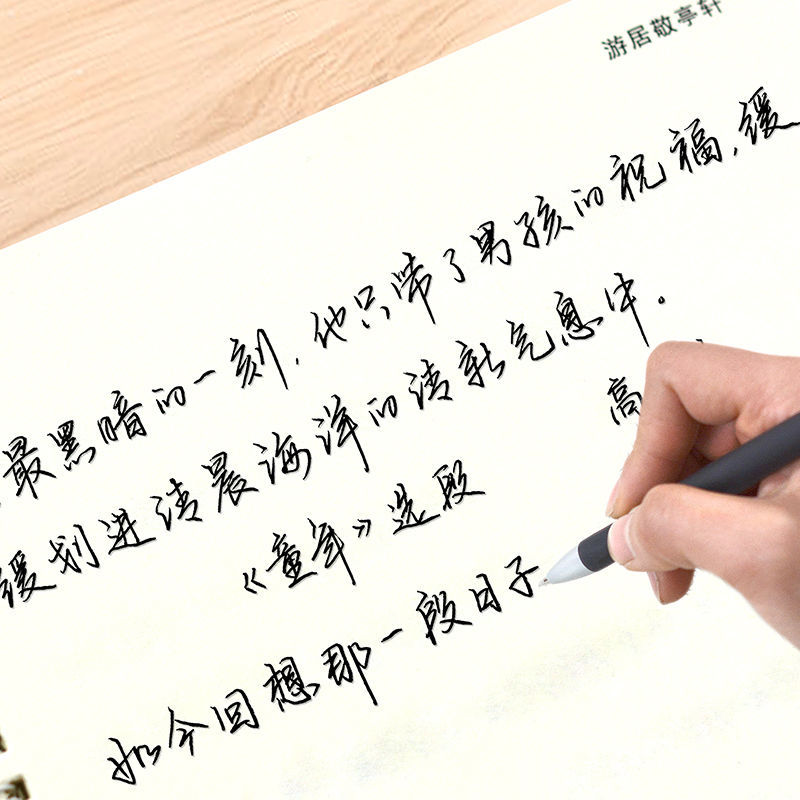 游居敬亭轩
最黑暗的一刻,他只带了男孩的祝福,缓
缓划进清晨海洋的清新气息中。
高
《童年》选段
如今回想那一段日子